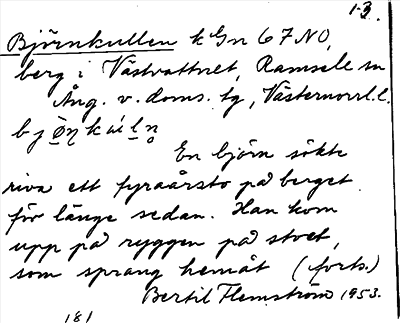 1-3.
Björnkullen k Gn 67 NO,
berg i Västvattnet, Ramsele sn
Ång. v. doms. tg, Västernorrl. l.
En björn sökte
riva ett fyraårsto på berget
för länge sedan. Han kom
upp på ryggen på stoet,
som sprang hemåt (forts.)
Bertil Flemström 1953.
181